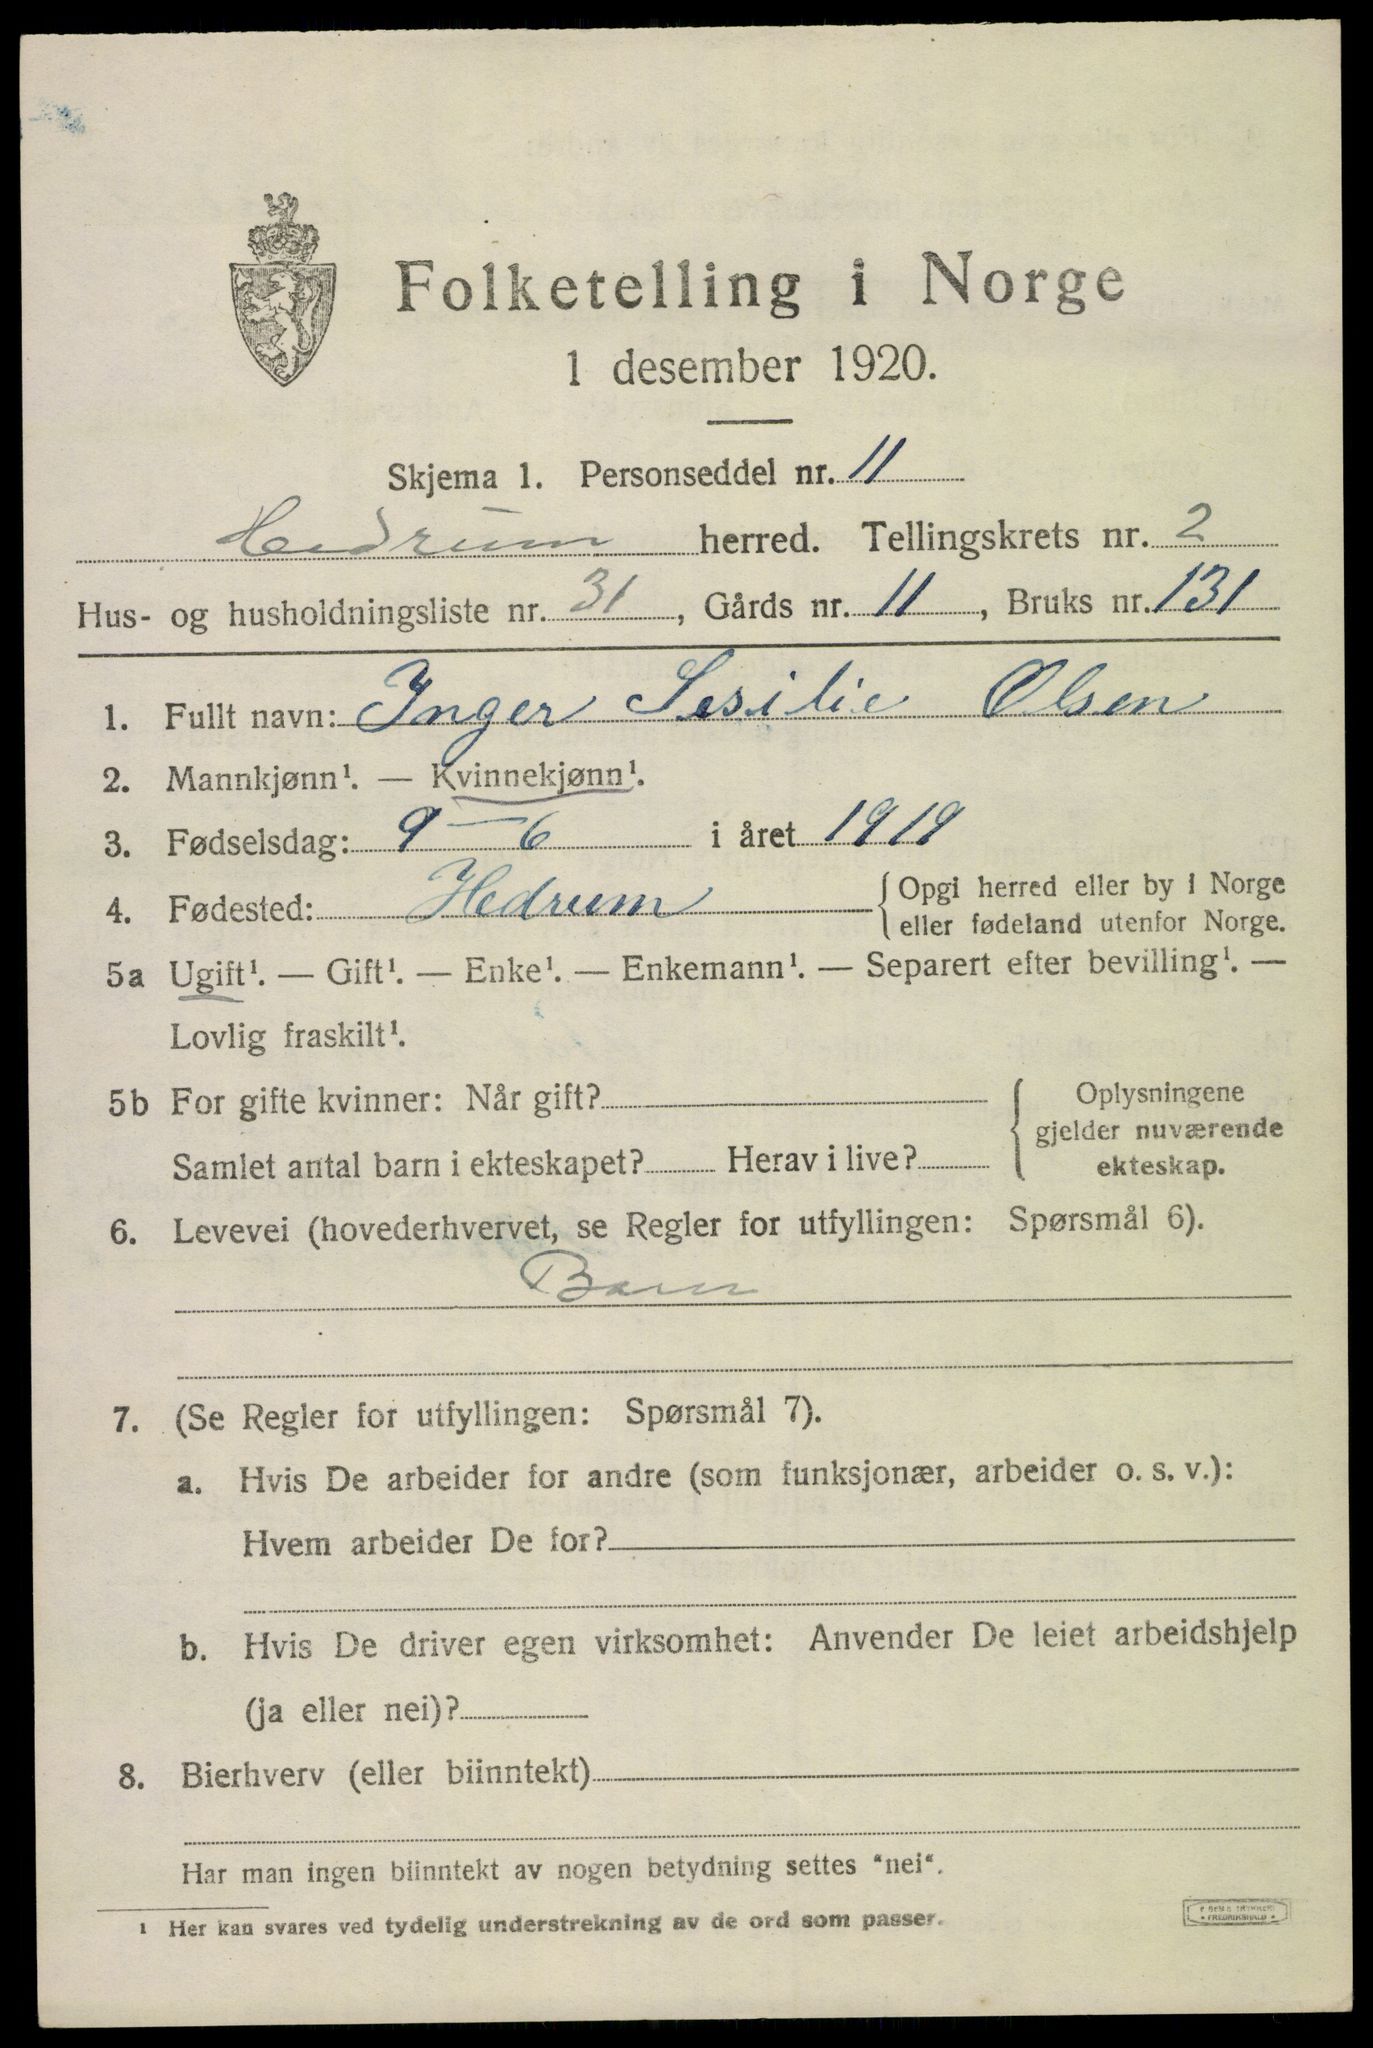 Folketelling i Norge
1 desember 1920.
Skjema 1. Personseddel nr. 11
Hedrum herred. Tellingskrets nr. 2
Hus- og husholdningsliste nr. 31, Gårds nr. 11, Bruks nr. 131
1. Fullt navn: Inger Sesilie Olsen
2. Mannkjønn¹. — Kvinnekjønn¹.
3. Fødselsdag: 9 — 6 i året 1919
4. Fødested: Hedrum { Opgi herred eller by i Norge
eller fødeland utenfor Norge.
5a Ugift¹. — Gift¹. — Enke¹. — Enkemann¹. — Separert efter bevilling¹. —
Lovlig fraskilt¹.
5b For gifte kvinner: Når gift? { Oplysningene
gjelder nuværende
Samlet antal barn i ekteskapet? Herav i live? ekteskap.
6. Levevei (hovederhvervet, se Regler for utfyllingen: Spørsmål 6).
Barn
7. (Se Regler for utfyllingen: Spørsmål 7).
a. Hvis De arbeider for andre (som funksjonær, arbeider o. s. v.):
Hvem arbeider De for?
b. Hvis De driver egen virksomhet: Anvender De leiet arbeidshjelp
(ja eller nei)?
8. Bierhverv (eller biinntekt)
Har man ingen biinntekt av nogen betydning settes "nei".
¹ Her kan svares ved tydelig understrekning av de ord som passer.
FREDRIKSHALD